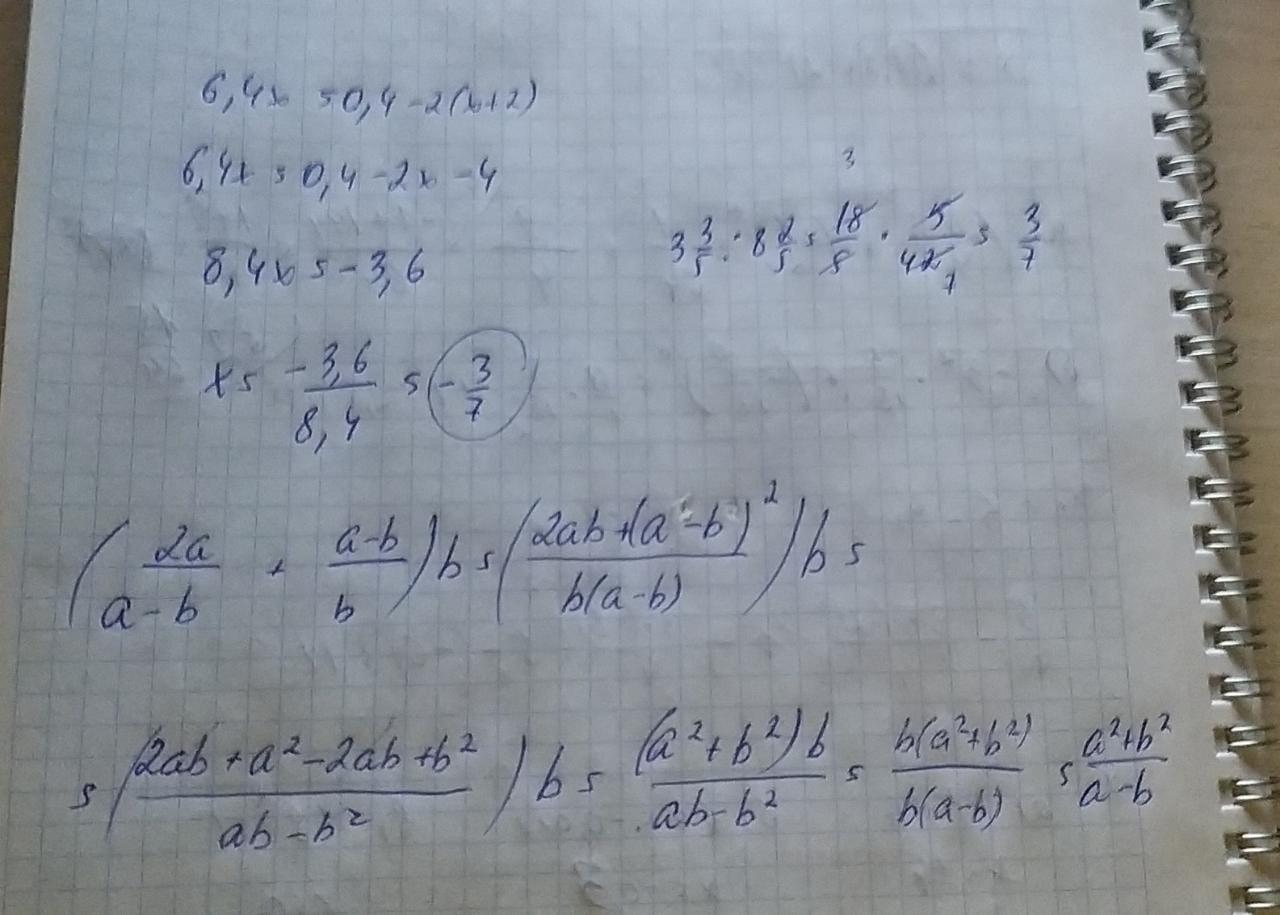 6,4x = 0,4 - 2(x+2)
6,4x = 0,4 - 2x - 4
8,4x = -3,6
3 3/5 : 8 2/5 = 18/5 · 5/42 = 3/7
3
7
x = -3,6/8,4 = -3/7
(2a/(a-b) + (a-b)/b) b = ((2ab+(a-b)²)/(b(a-b))) b =
= ((2ab+a²-2ab+b²)/(ab-b²)) b = (a²+b²)b/(ab-b²) = b(a²+b²)/(b(a-b)) = (a²+b²)/(a-b)